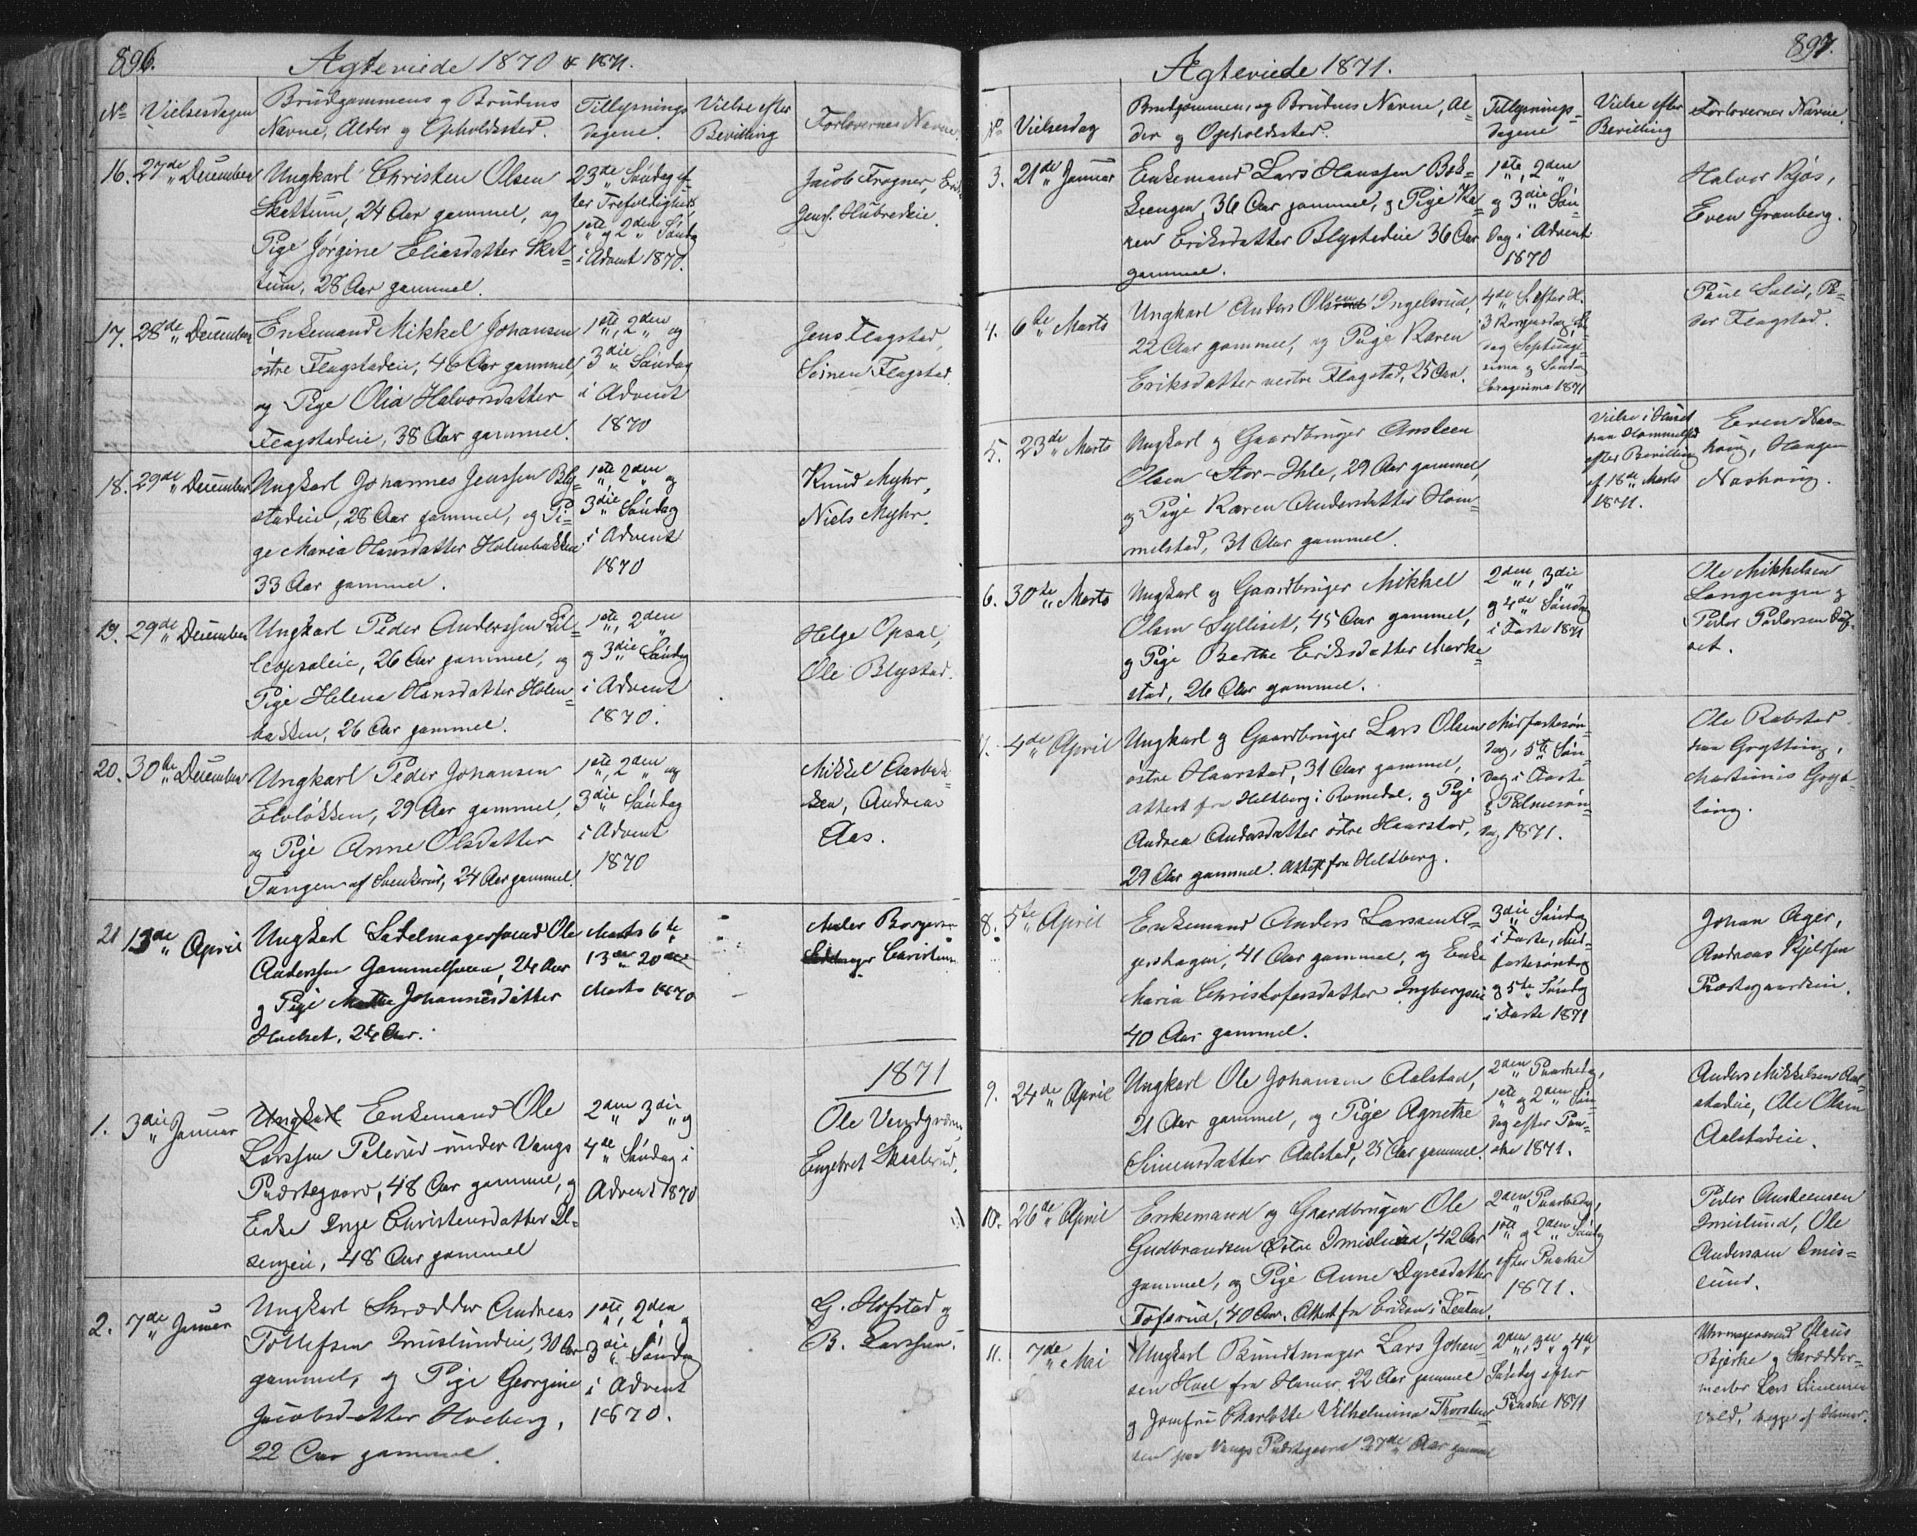 896.
Ægteviede 1870 & 1871.
No
Vielsesdagen
Brudgommens og Brudens
Navne, Alder og Opholdssted.
Tillysnings
dagene.
Vielse efter
Bevilling
Forlovernes Navne.
16. 27de December
Ungkarl Christen Olsen
Skattum, 24 Aar gammel, og
Pige Jörgine Eliasdatter Skat-
tum, 28 Aar gammel.
23de Söndag ef-
ter Trefoldigheds
1ste og 2den Söndag
i Advent 1870.
Jacob Frogner,
Jens Hubredeie.
17. 28de December
Enkemand Mikkel Johansen
östre Flagstadeie, 46 Aar gammel,
og Pige Olia Halvorsdatter
Flagstadeie, 38 Aar gammel.
1ste, 2den og
3die Söndag
i Advent
1870
Jens Flagstad,
Simen Flagstad.
18. 29de December
Ungkarl Johannes Jenssen Bly-
stadeie, 28 Aar gammel, og Pi-
ge Maria Hansdatter Holenbakken
33 Aar gammel.
1ste, 2den og
3die Söndag
i Advent
1870
Knud Myhr,
Niels Myhr.
19. 29de December
Ungkarl Peder Anderssen Lil-
leopsaleie, 26 Aar gammel, og
Pige Helena Hansdatter Holen-
bakken, 26 Aar gammel.
1ste, 2den
og 3die Söndag
i Advent
1870.
Helge Opsal,
Ole Blystad.
20. 30de December
Ungkarl Peder Johansen
Elvløkken, 29 Aar gammel,
og Pige Anne Olsdatter
Tangen af Svenkerud, 24 Aar gammel.
1ste, 2den og
3die Söndag
i Advent
1870
Mikkel Aasbak-
ken, Andreas
Aas.
21 13de April
Ungkarl Sadelmagersvend Ole
Anderssen Gammelsveen, 24 Aar
og Pige Marthe Johannesdatter
Hoelset, 24 Aar.
Marts 6te,
13de 20de
Marts 1870
1871
1. 3die Januar
Ungkarl Enkemand Ole
Larssen Pelerud under Vangs
Præstegaard, 48 Aar gammel, og
Enke Inge Christensdatter
48 Aar gammel
2den 3die og
4de Söndag i
Advent 1870
Ole
Engebret Skaalerud.
2. 7de Januar
Ungkarl Skrædder Andreas
Tollefsen Imislundeie, 30 Aar
gammel, og Pige Georgine
Jacobsdatter Hoeberg,
22 Aar gammel.
1ste, 2den og
3die Söndag
i Advent
1870.
G. Hofstad og
B. Larssen.
897.
Ægteviede 1871.
No
Vielsesdag
Brudgommens og Brudens Navne, Al-
der og Opholdssted.
Tillysnings-
dagene
Vielse efter
Bevilling
Forlovernes Navne.
3. 21de Januar
Enkemand Lars Hanssen Bæk-
keengen, 36 Aar gammel, og Pige Ka-
ren Eriksdatter Blystadeie 36 Aar
gammel.
1ste, 2den
og 3die Sön-
dag i Advent
1870
Halvor Kjos,
Even Granberg.
4. 6te Marts
Ungkarl Anders Olsen Ingelsrud,
22 Aar gammel, og Pige Karen
Eriksdatter vestre Flagstad, 25 Aar.
4de S. efter H.
3 Kongersdag,
dag Septuage-
sima og Söndag
Sexagesima 1871
Poul Salid, Pe-
der Flagstad.
5. 23de Marts
Ungkarl og Gaardbruger Ansteen
Olsen Stor-Ihle, 29 Aar gammel,
og Pige Karen Andersdatter Hom-
melstad, 31 Aar gammel.
Vielse i Huset
paa Hommelstad
efter Bevilling
af 18de Marts
1871.
Even Nas-
houg, Haagen
Nashoug.
6. 30te Marts
Ungkarl og Gaardbruger Mikkel
Olsen Sylliset, 45 Aar gammel,
og Pige Berthe Eriksdatter Marke-
stad, 26 Aar gammel.
2den, 3die
og 4de Söndag
i Faste 1871
Ole Mikkelsen
Langengen og
Peder Pedersen
7. 4de April
Ungkarl og Gaardbruger Lars Olsen
östre Haarstad, 31 Aar gammel,
attest fra Heltberg i Romedal, og Pige
Andrea Andersdatter östre Haarstad,
29 Aar gammel. Attest fra Heltberg.
Midfastesön-
dag, 5te Sön-
dag i Faste
og Palmesön-
dag 1871.
Ole Rabstad
paa Grytting,
Martinius Gryt-
ting.
8. 5te April
Enkemand Anders Larssen A-
gershagen, 41 Aar gammel, og Enke
Maria Christofersdatter Ingbergseie
40 Aar gammel.
3die Söndag
i Faste, Mid-
fastesöndag
og 5te Söndag
i Faste 1871
Johan Ager,
Andreas Kjelsen
Præstegaardseie.
9. 24de April
Ungkarl Ole Johansen Aalstad,
21 Aar gammel, og Pige Agnethe
Simensdatter Aalstad, 25 Aar gammel.
2den Paaskedag,
1ste og 2den Sön-
dag efter Paa-
ske 1871.
Anders Mikkelsen Aal-
stadeie, Ole Olsen
Aalstadeie.
10. 26de April
Enkemand og Gaardbruger Ole
Gudbrandsen Østre Imislund, 42 Aar
gammel, og Pige Anne Dyresdatter
Tofsrud, 40 Aar. Attest fra Eriksen i Löiten.
2den Paaskedag,
1ste og 2den Söndag
efter Paaske
1871.
Peder Ansteensen
Imislund, Ole
Andersen Imis-
lund.
11. 7de Mai
Ungkarl Bundtmager Lars Johan-
sen Hoel fra Hamar, 22 Aar gammel
og Jomfru Charlotte Vilhelmina Thorsten-
sen paa Vangs Præstegaard 27de Aar gammel
2den, 3die og 4de
Söndag efter
Paaske 1871
Uhrmagersvend Olaus
Bjerke og Skrædder-
mester Lars Simensen
Vold, begge af Hamar.